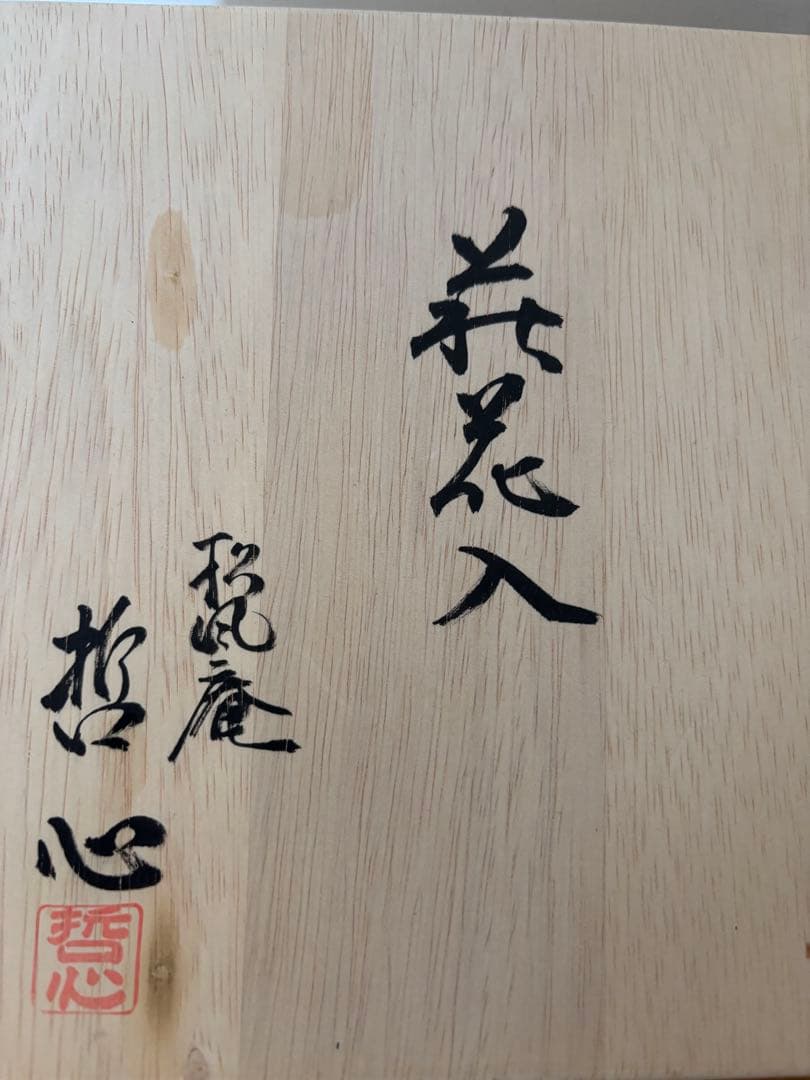 萩花入
風庵
哲心
哲心